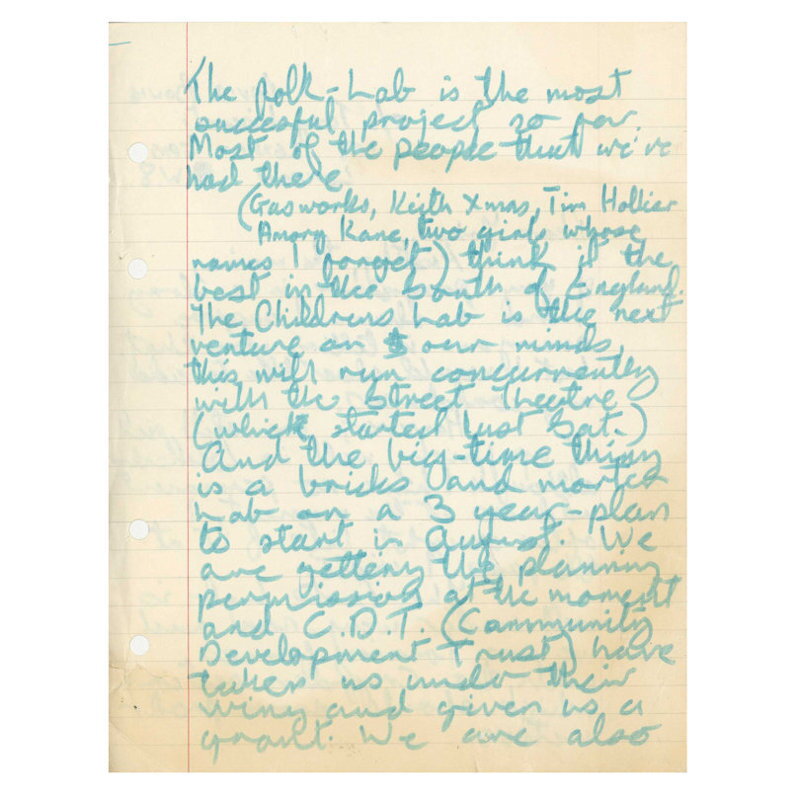 The folk-Lab is the most
succesful project so far.
Most of the people that we've
had there
(Gasworks, Keith Xmas, Tim Hollier
Amory Kane, two girls whose
names I forget) think it the
best in the South of England.
The Childrens Lab is the next
venture on our minds,
this will run concurrently
with the Street Theatre
(which started last Sat.)
And the big-time thing
is a bricks and mortar
Lab on a 3 year-plan
to start in August. We
are getting the planning
permission at the moment
and C.D.T. (Community
Development Trust) have
taken us under their
wing and given us a
grant. We are also